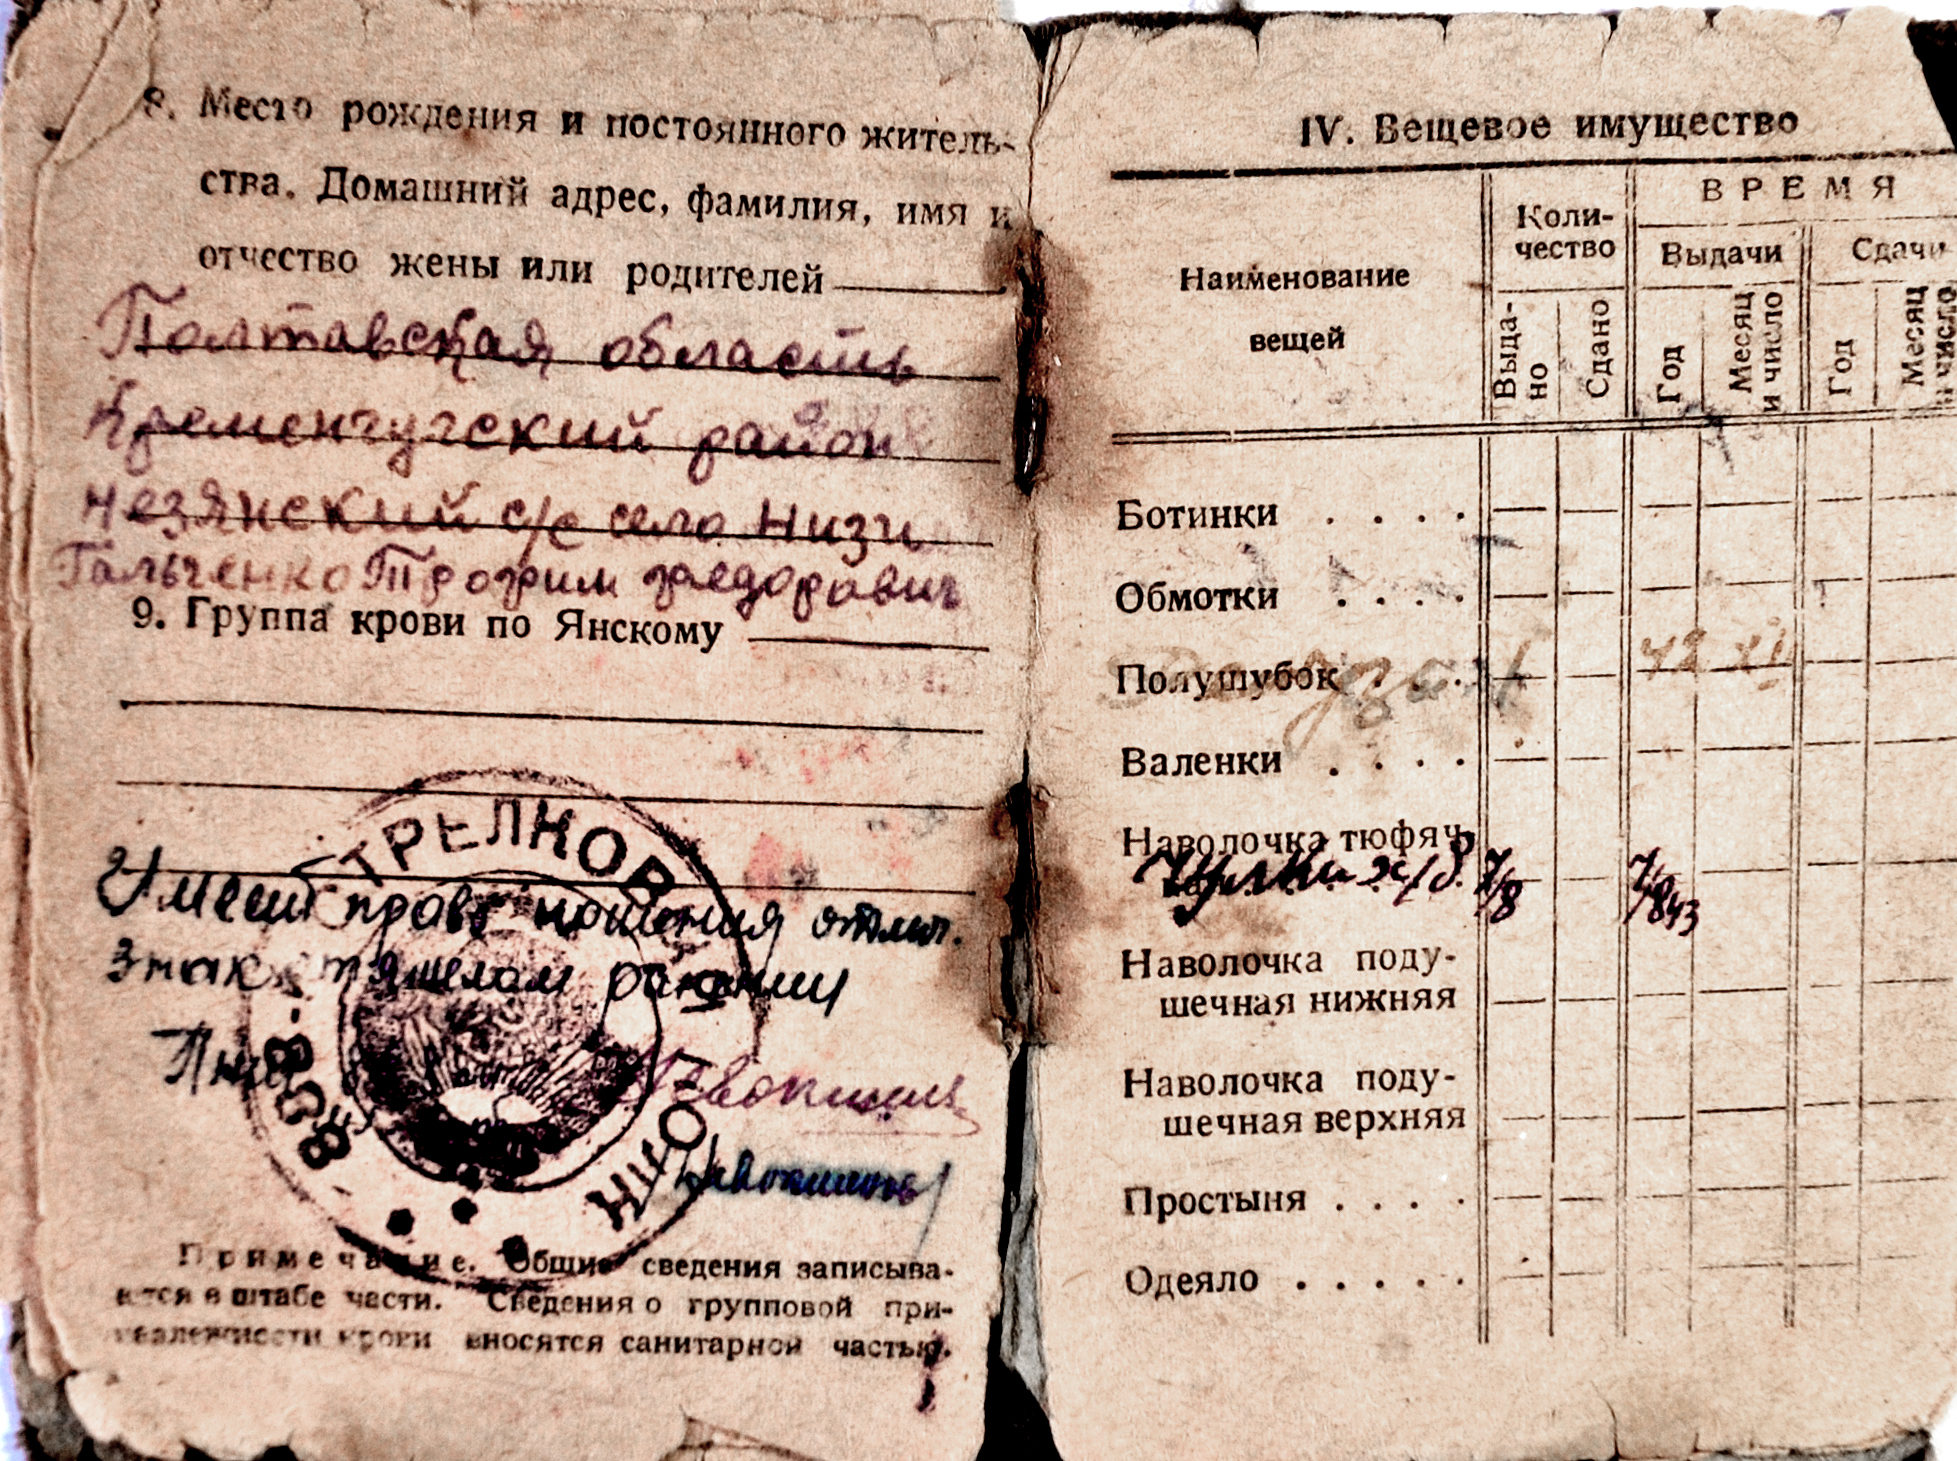 8. Место рождения и постоянного житель-
ства. Домашний адрес, фамилия, имя и
отчество жены или родителей
Полтавская область
Кременчугский район
Незянский с/с село Низи
Гальченко Трофим Фаедорович
9. Группа крови по Янскому
СТРЕЛКОВ
Имеет право ношения отлич.
знак о тяжелом ранении
Примечание. Общие сведения записыва-
ются в штабе части. Сведения о групповой при-
надлежности крови вносятся санитарной частью.
IV. Вещевое имущество
Наименование
вещей
Коли-
чество
ВРЕМЯ
Выдачи
Сдачи
Выда-
но
Сдано
Год
Месяц
и число
Год
Месяц
и число
Ботинки . . . .
Обмотки . . . .
Полушубок . . . 42 XI
Валенки . . . .
Наволочка тюфяч
х/б. 7/8 7/843
Наволочка поду-
шечная нижняя
Наволочка поду-
шечная верхняя
Простыня . . . .
Одеяло . . . . .